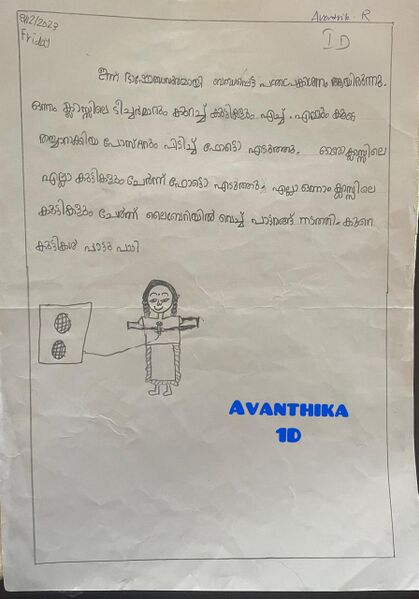 8/12/2023
Friday
Avanthik. R
I D
ഇന്ന് ഭാഷോത്സവവുമായി ബന്ധപ്പെട്ട ആയിരുന്നു.
ഒന്നാം ക്ലാസ്സിലെ ടീച്ചർമാരും കുറച്ച് കുട്ടികളും എച്ച്. എമ്മും കൂടെ
തയ്യാറാക്കിയ പോസ്റ്ററും പിടിച്ച് ഫോട്ടൊ എടുത്തു. ക്ലാസ്സിലെ
എല്ലാ കുട്ടികളും ചേർന്ന് ഫോട്ടൊ എടുത്തു. എല്ലാ ഒന്നാം ക്ലാസിലെ
കുട്ടികളും ചേർന്ന് ലൈബ്രറിയിൽ വെച്ച് നടത്തി. കുറെ
കുട്ടികൾ പാട്ടു പാടി
AVANTHIKA
1D